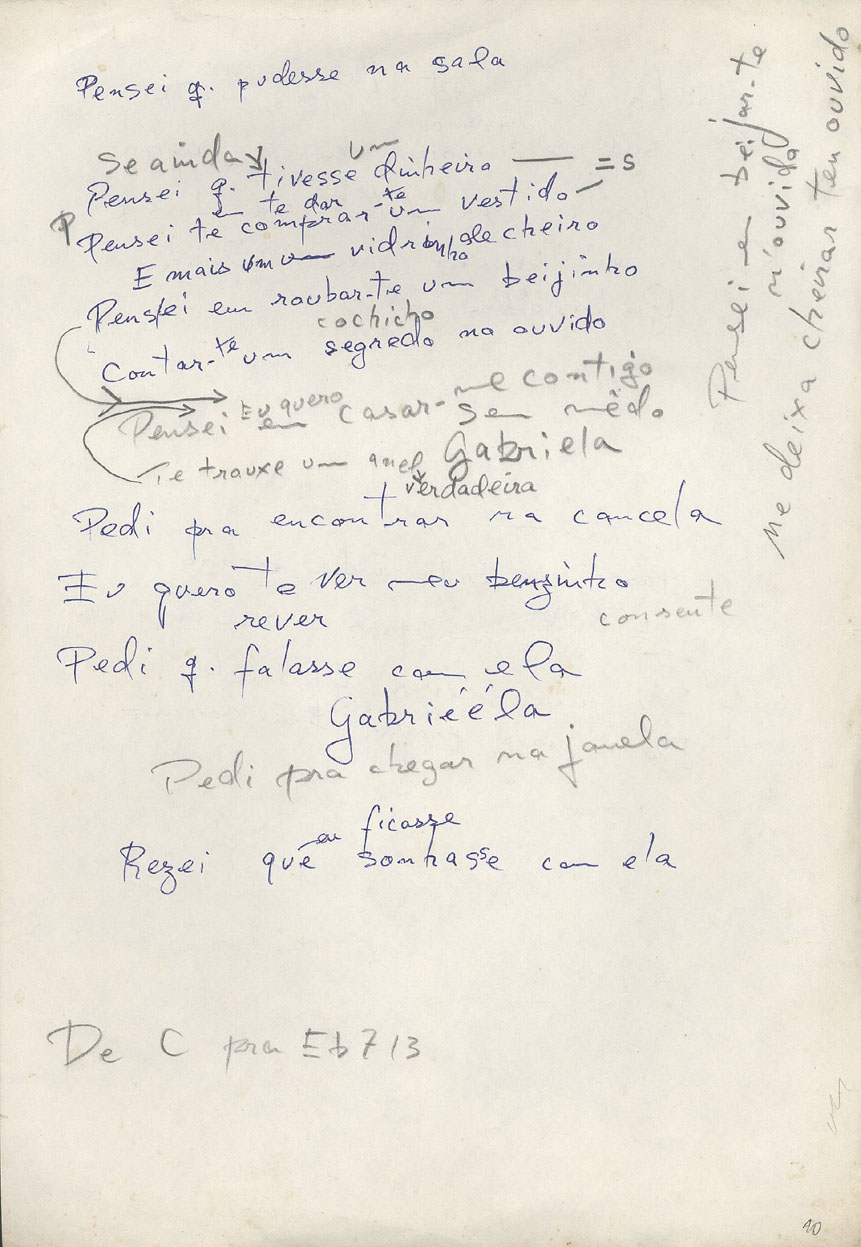 Pensei q. pudesse na sala
Se ainda um
Pensei q. tivesse dinheiro — = s
em te dar te
P Pensei te comprar-um vestido
E mais um vidrinho de cheiro
Pensei em roubar-te um beijinho
cochicho
Contar-te um segredo no ouvido
Pensei em Eu quero casar-me contigo
sem mêdo
Te trouxe um anel Gabriela
verdadeira
Pedi pra encontrar na cancela
Eu quero te ver meu benzinho
rever
consente
Pedi q. falasse com ela
Gabriééla
Pedi pra chegar na janela
eu ficasse
Rezei que sonhasse com ela
De C pra Eb7 13
Pensei em beijar-te
n'ouvido
Me deixa cheirar teu ouvido